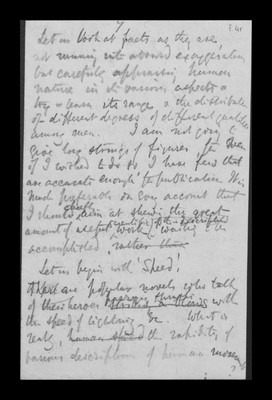 F. 4r
Let us look at facts as they are,
not running into absurd exaggeration
but carefully appraising human
nature in its various aspects &
try to learn its range & the distribution
of different degrees of different qualities
among men. I am not going to
give long strings of figures for even
if I wished to do so I have few that
are accurate enough for publication. It is
much preferable on every account that
I should aim at showing the great
amount of useful work waiting to be
accomplished, rather
Let us begin with 'Speed'.
There are popular novels who talk
of their heroes with
the speed of lightning &c. What is
really, human speed the rapidity of
various descriptions of human movement
?